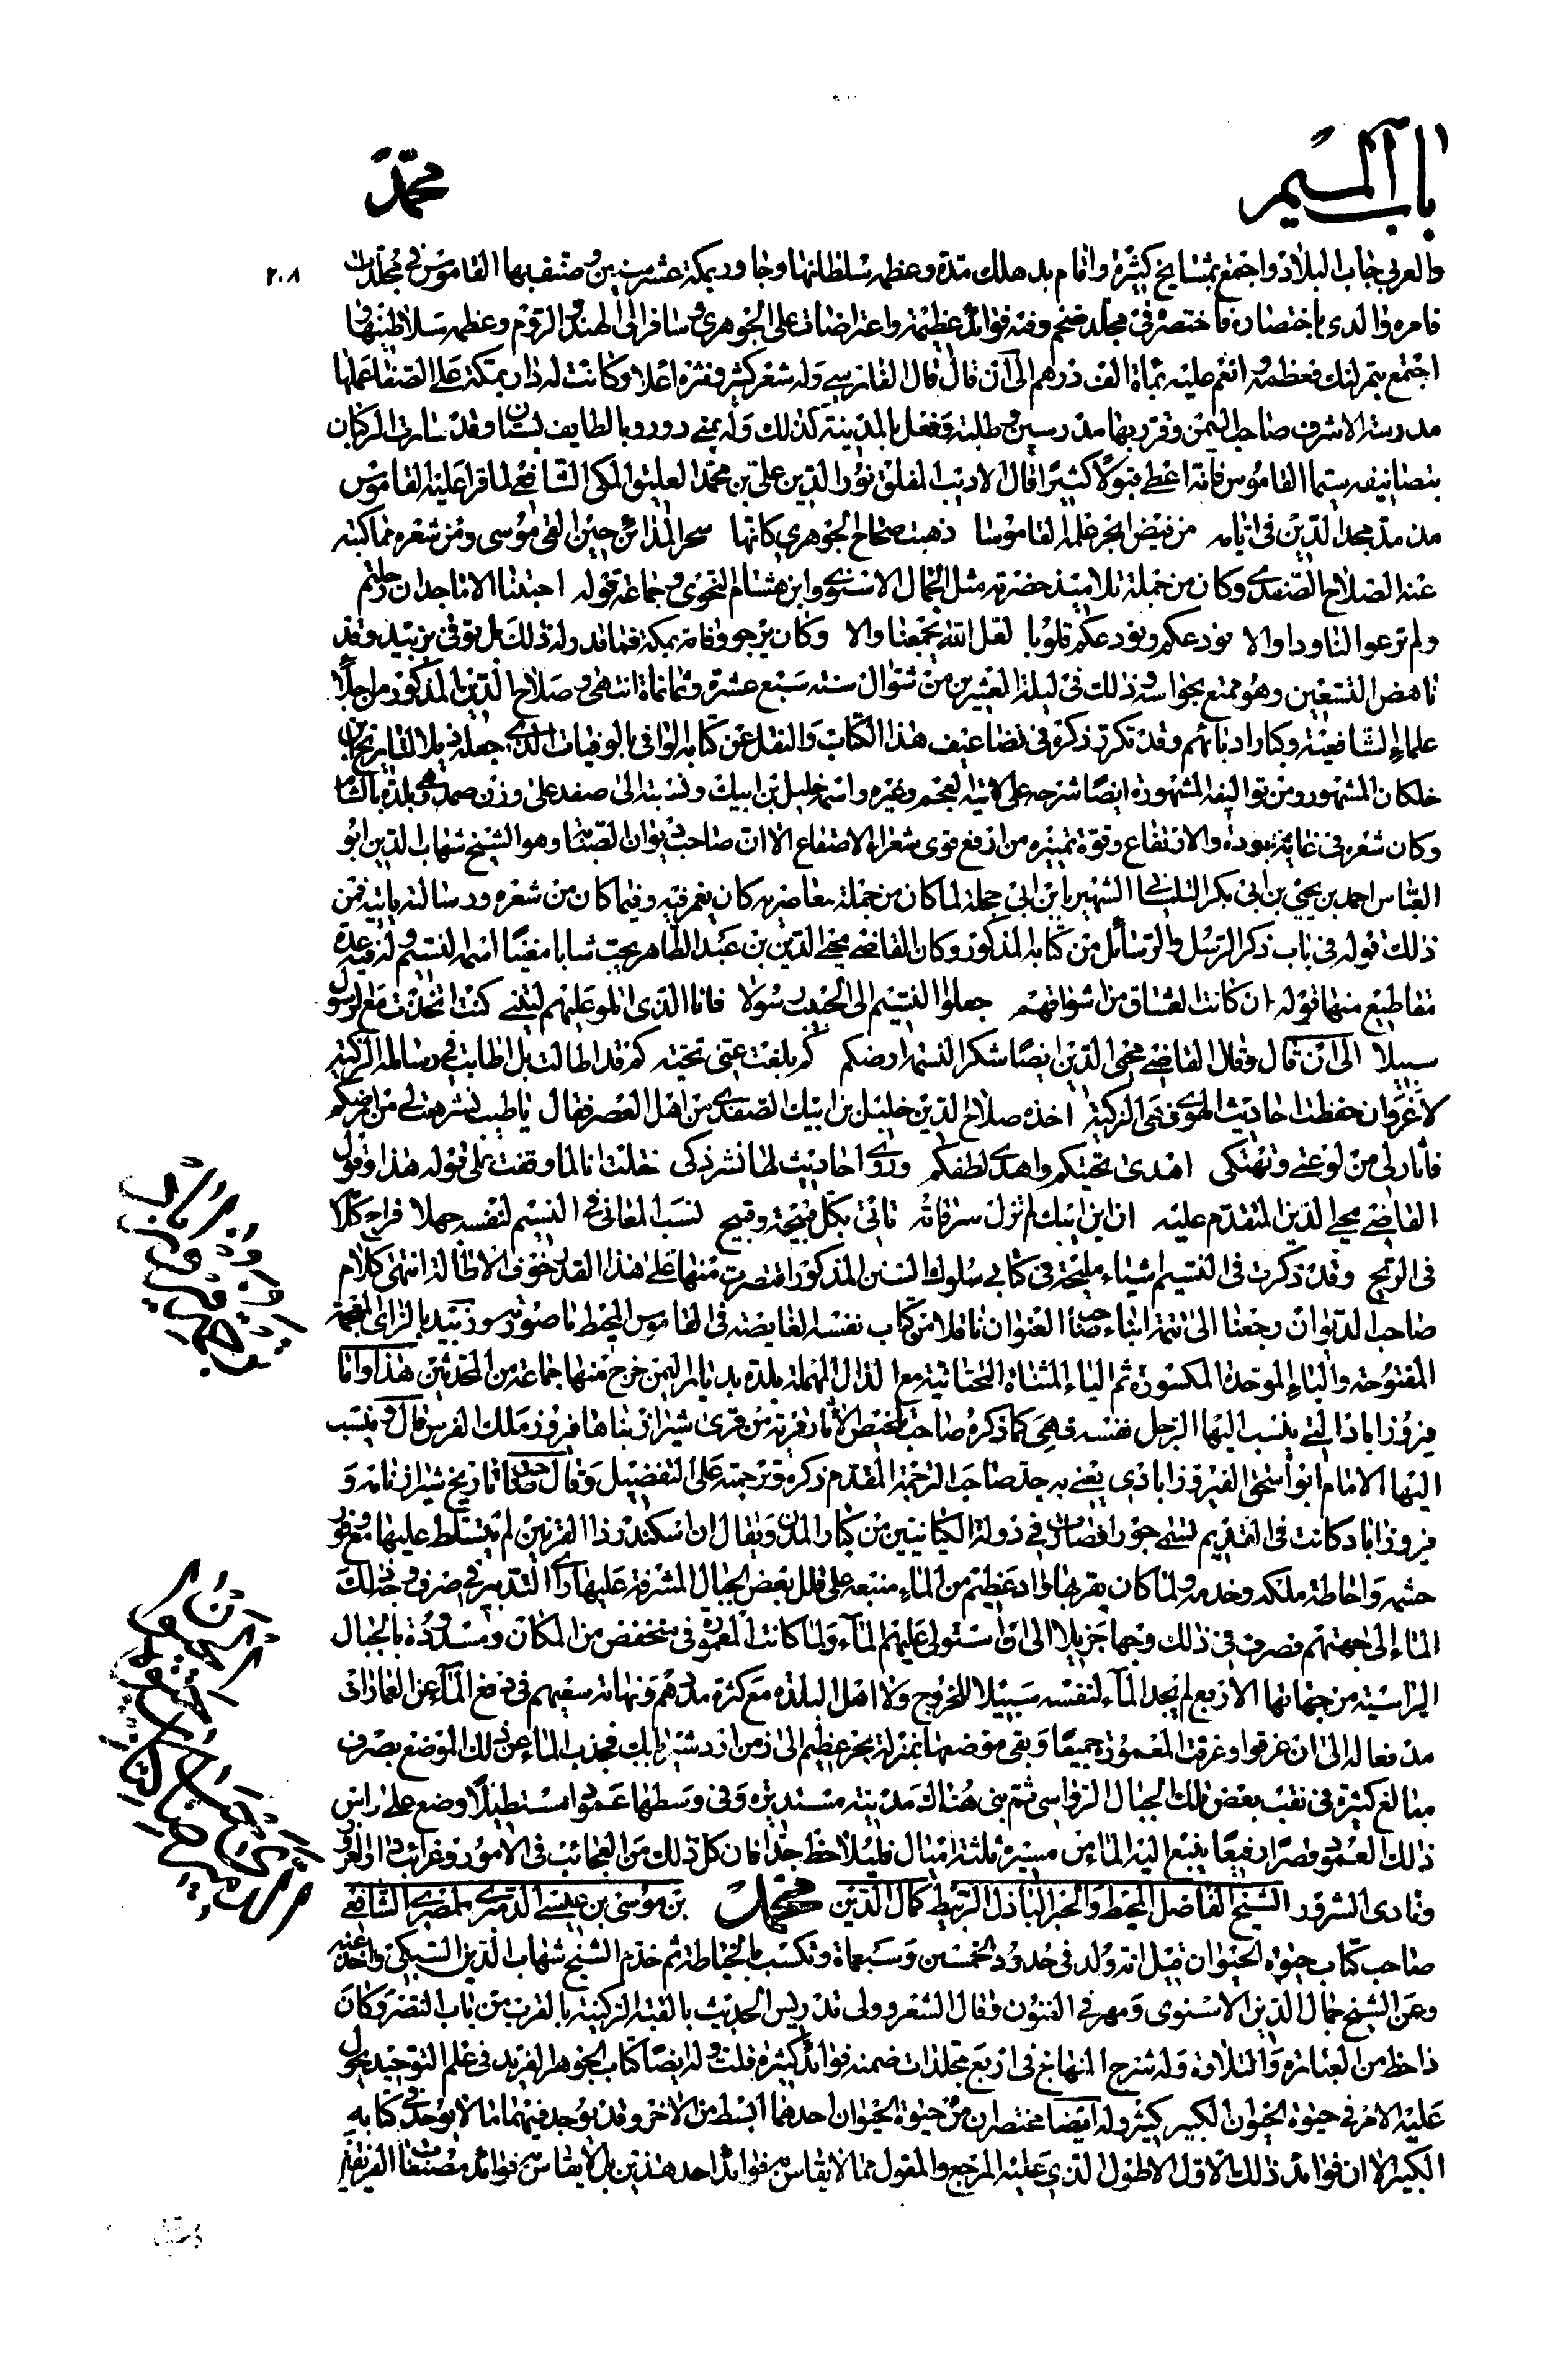 باب الميم
محمد
٢٠٨
والعربي جاب البلاد واجتمع بمشايخ كثيرة واقام بدهلك مدة وعظمه سلطانها وجاور بمكة عشر سنين وصنف بها القاموس في مجلدات
فامره والدي باختصاره فاختصره في مجلد ضخم وفيه فوائد عظيمة واعتراضات على الجوهري وسافر الى الهند والروم وعظمه سلاطينها و
اجتمع بتمرلنك فعظمه وانعم عليه بمأة الف درهم الى ان قال قال الفارسي وله شعر كثير ونثره اعلا وكانت له دار بمكة على الصفا عملها
مدرسة الاشرف صاحب اليمن وقرر بها مدرسين وطلبة وفعل بالمدينة كذلك وله بمنى دور وبالطايف بستان وقد سارت الركبان
بتصانيفه سيما القاموس فانه اعطي قبولا كثيرا قال الاديب المفلق نور الدين علي بن محمد العليف المكي الشافعي لما قرا عليه القاموس
مذ مد مجد الدين في ايامه من فيض ابحر علمه القاموسا ذهبت صحاح الجوهري كانها سحر المدائن حين القى موسى ومن شعره مما كتبه
عنه الصلاح الصفدي وكان من جملة تلاميذ حضرته مثل الجمال الاسنوي وابن هشام النحوي وجماعة قوله احبتنا الاماجد ان رحلتم
ولم ترعوا لنا ودا والا نودعكم ونودعكم قلوبا لعل الله يجمعنا والا وكان يرجو وفاته بمكة فما قدر له ذلك بل توفي بزبيد وقد
ناهض التسعين وهو ممتع بحواسه وذلك في ليلة العشرين من شوال سنة سبع عشرة وثمانمأة انتهى وصلاح الدين المذكور من اجلاء
علماء الشافعية وكبار ادبائهم وقد تكرر ذكره في تضاعيف هذا الكتاب والنقل عن كتابه الوافي بالوفيات الذي جعله ذيلا لتاريخ ابن
خلكان المشهور ومن تواليفه المشهورة ايضا شرحه على لامية العجم وغيره واسمه خليل بن ايبك ونسبته الى صفد على وزن صمد وهي بلدة بالشام
وكان شعره في غاية الجودة والارتفاع وقوة تميزه من ارفع قوى شعراء الاصقاع الا ان صاحب ديوان الصبابة وهو الشيخ شهاب الدين ابو
العباس احمد بن يحيى بن ابي بكر التلمساني الشهير بابن ابي حجلة لما كان من جملة معاصريه كان يغمز فيه وفيما كان من شعره ورسالته ياتيه فمن
ذلك قوله في باب ذكر الرسل والرسائل من كتابه المذكور وكان القاضي محيي الدين بن عبد الظاهر يحب شابا مغنيا اسمه النسيم وله فيه عدة
مقاطيع منها قوله ان كانت العشاق من اشواقهم جعلوا النسيم الى الحبيب رسولا فانا الذي اتلو عليهم ليتني كنت اتخذت مع الرسول
سبيلا الى ان قال وقال القاضي محيى الدين ايضا شكرا لنسمة ارضكم كم بلغت عني تحية كم قد اطالت بل اطابت في رسائلها الزكية
لا غروان حفظت احاديث الهوى فهي الزكية اخذه صلاح الدين خليل بن ايبك الصفدي من اهل العصر فقال يا طيب نشر هب لي من ارضكم
فاثار لي من لوعتي وتهتكي اهدى تحيتكم واهدى لطفكم وروى احاديث لها نشر ذكي فقلت انا لما وقفت على قوله هذا وقول
القاضي محيي الدين المتقدم عليه ان ابن ايبك لم تزل سرقاته تاتي بكل قبيحة وقبيح نسب المعاني في النسيم لنفسه جهلا فراح كلامه
في الريح وقد ذكرت في النسيم اشياء مليحة في كتابي سلوك السنن المذكور اقتصرت منها على هذا القدر خوف الاطالة انتهى كلام
صاحب الديوان رجعنا الى تتمة انباء صاحب العنوان ناقلا من كتاب نفسه الغايصة في القاموس المحيط ما صورته وزبيد بالزاي المعجمة
المفتوحة والباء الموحدة المكسورة ثم الياء المثناة التحتانية مع الدال المهملة بلدة بديار اليمن خرج منها جماعة من المحدثين هذا واما
فيروزاباد التي ينسب اليها الرجل نفسه فهي كما ذكره صاحب تلخيص الآثار قرية من قرى شيراز بناها فيروز ملك الفرس قال وينسب
اليها الامام ابو اسحق الفيروزابادي يعني به جد صاحب الترجمة المقدم ذكره وترجمته على التفضيل وقال صاحب تاريخ شيراز نامه و
فيروزاباد كانت في القديم تسمى جور افضات في دولة الكيانيين من كبار المدن ويقال ان اسكندر ذا القرنين لم يتسلط عليها مع وفور
حشمه واحاطة ملكه وخدمه ولما كان بقربها واد عظيم من الماء منبعه على قلل بعض الجبال المشرفة عليها راى التدبير في صرف وجه ذلك
الماء الى جهتهم فصرف في ذلك وجها جزيلا الى ان استولى عليهم الماء ولما كانت المعمورة في منخفض من المكان ومسدودة بالجبال
الراسية من جهاتها الاربع لم يجد الماء لنفسه سبيلا للخروج ولا اهل البلدة مع كثرة مددهم ونهاية سعيهم في دفع الماء عن العمارات
مدفعا له الى ان غرقوا وغرقت المعمورة جميعا وبقي موضعها بمنزلة بحر عظيم الى زمن اردشير بابك فجذب الماء عن ذلك الموضع بصرف
مبالغ كثيرة في نقب بعض تلك الجبال الرواسي ثم بنى هناك مدينة مستديرة وفي وسطها عمودا مستطيلا وضع على راس
ذلك العمود قصرا رفيعا ينبع اليه الماء من مسيرة ثلثة اميال فليلاحظ جدا فان كل ذلك من العجائب في الامور وغرائب دار الغرور
ونادى الشرور الشيخ الفاضل المحيط والحبر الباذل الربيط كمال الدين محمد بن موسى بن عيسى الدميري المصري الشافعي
صاحب كتاب حيوة الحيوان قيل انه ولد في حدود الخمسين وسبعمأة وتكسب بالخياطة ثم خدم الشيخ شهاب الدين السبكي واخذ عنه
وعن الشيخ جمال الدين الاسنوي ومهر في الفنون وقال الشعر وولي تدريس الحديث بالقبة الركنية بالقرب من باب النصر وكان
ذا حظ من العبادة والتلاوة وله شرح المنهاج في اربع مجلدات ضمنه فوائد كثيرة قلت وله ايضا كتاب الجوهر الفريد في علم التوحيد يحول
عليه الامر في حيوة الحيوان الكبير كثيرا وله ايضا مختصران من حيوة الحيوان احدهما ابسط من الاخر وقد يوجد فيهما ما لا يوجد في كتابه
الكبير الا ان فوائد ذلك الاول الاطول الذي عليه المرجع والمعول مما لا يقاس به فوائد احد هذين بل لا يقاس به فوائد مصنفات الفريقين